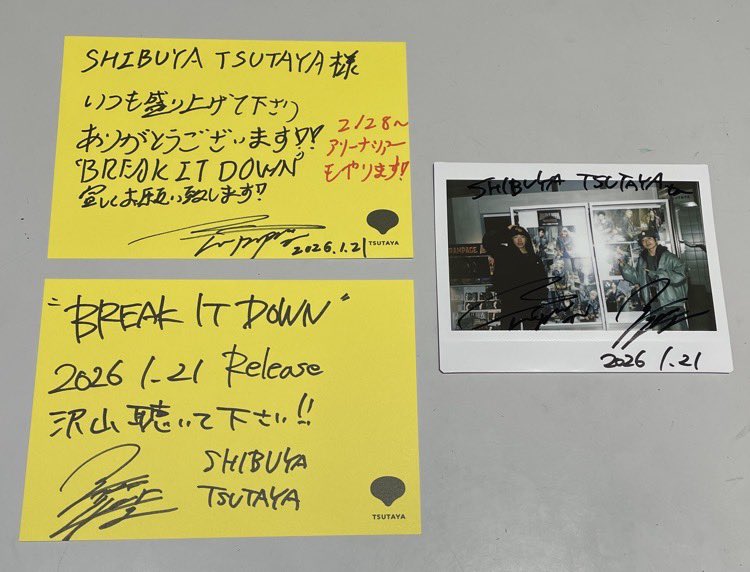 SHIBUYA TSUTAYA様
いつも盛り上げて下さり
ありがとうございます!!
"BREAK IT DOWN"
宜しくお願い致します!
2/28〜
アリーナツアー
もやります!
2026.1.21
TSUTAYA
"BREAK IT DOWN"
2026 1.21 Release
沢山聴いて下さい!!
SHIBUYA
TSUTAYA
TSUTAYA
SHIBUYA TSUTAYA
RAMPAGE
2026 1.21